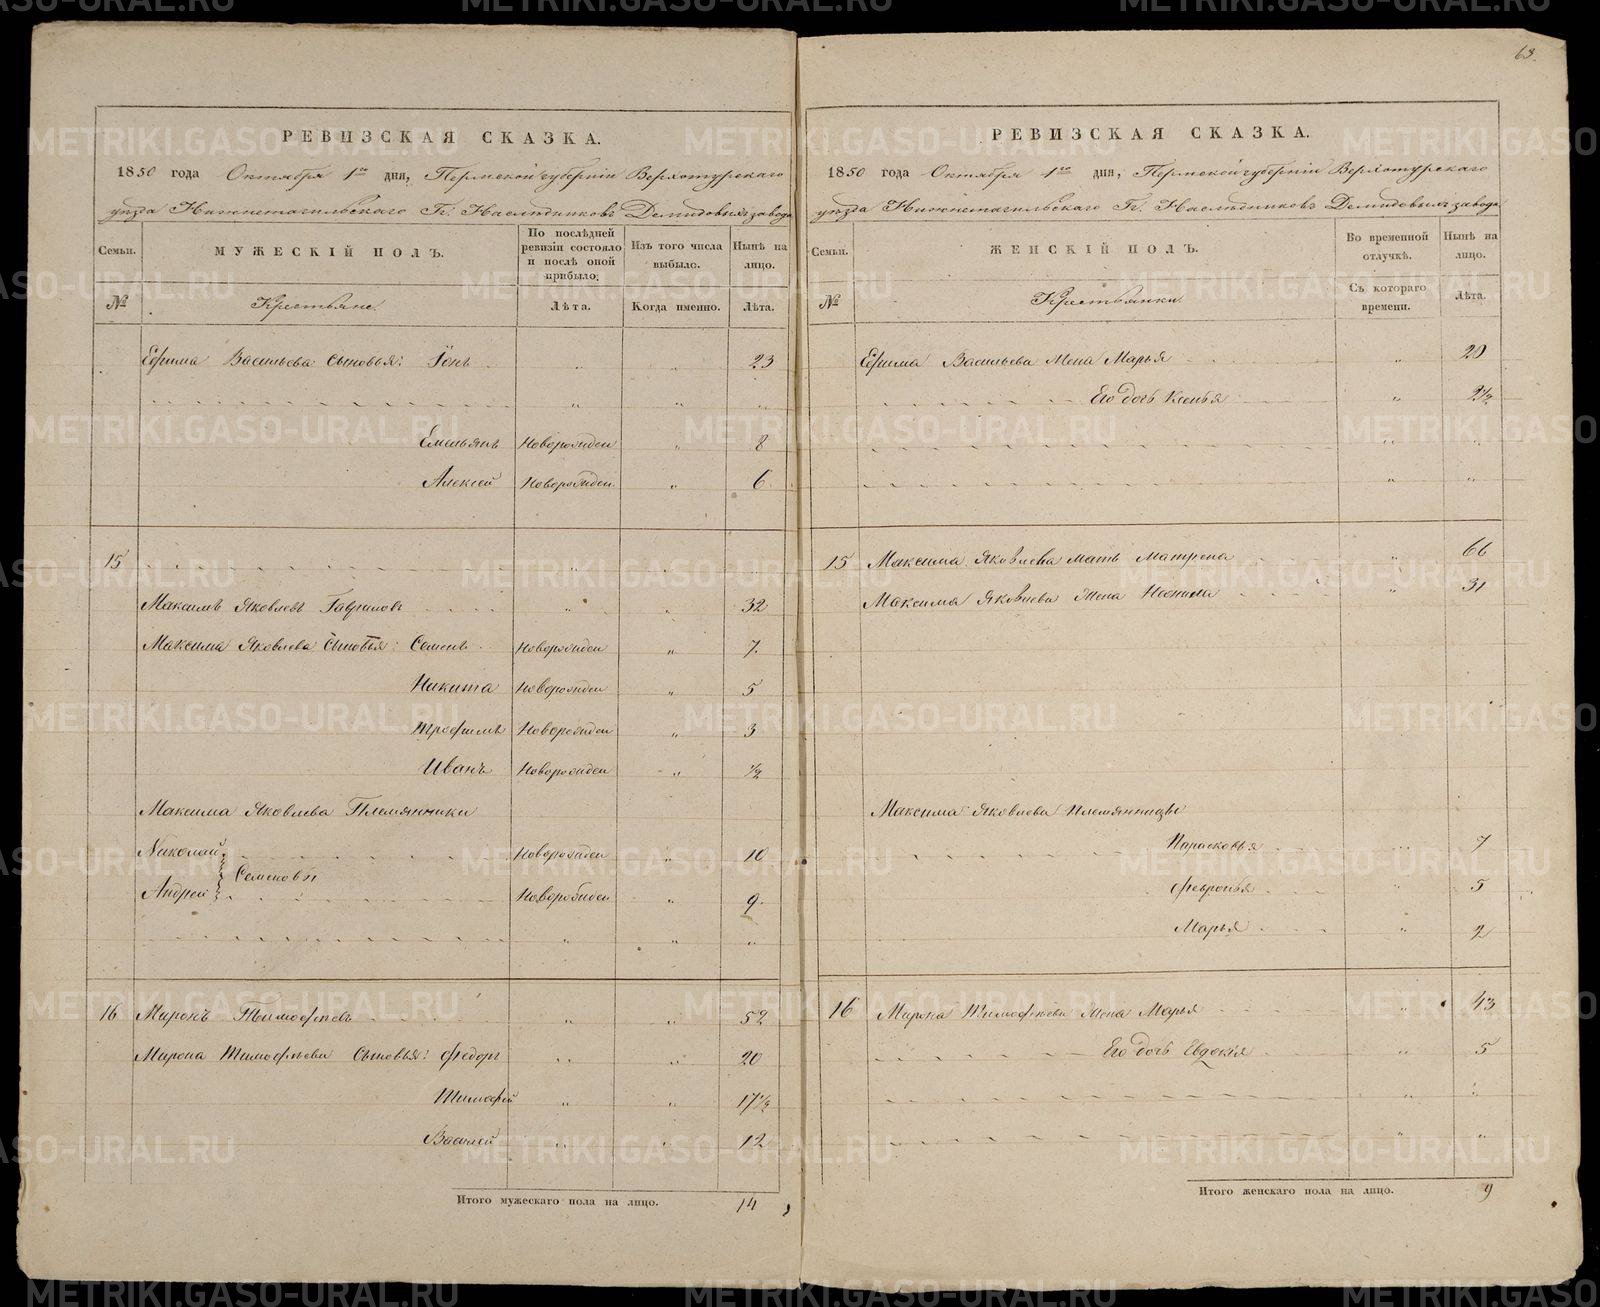 63.
РЕВИЗСКАЯ СКАЗКА.
1850 года Октября 1го дня, Пермской губерніи Верхотурскаго
уѣзда Нижнетагильскаго Гг. Наслѣдниковъ Демидовыхъ завода
Семьи. МУЖЕСКІЙ ПОЛЪ. По послѣдней ревизіи состояло и послѣ оной прибыло. Изъ того числа выбыло. Нынѣ на лицо.
№ Крестьяне. Лѣта. Когда именно. Лѣта.
Ефима Васильева Сыновья: 23
Емельянъ Новорожден " 8
Алексей Новорожден " 6
15
Максимъ Яковлевъ Гавриловъ " " 32
Максима Яковлева Сыновья: Семенъ Новорожден " 7
Никита Новорожден " 5
Трофимъ Новорожден " 3
Иванъ Новорожден " 1/2
Максима Яковлева Племянники
Николай Новорожден " 10
Семеновы
Андрей Новорожден " 9
16 Миронъ Тимофѣевъ " " 52
Мирона Тимофѣева Сыновья: Федоръ " " 20
Тимофей " " 17 1/2
Василей " " 12
Итого мужескаго пола на лицо. 14
РЕВИЗСКАЯ СКАЗКА.
1850 года Октября 1го дня, Пермской губерніи Верхотурскаго
уѣзда Нижнетагильскаго Гг. Наслѣдниковъ Демидовыхъ завода
Семьи. ЖЕНСКІЙ ПОЛЪ. Во временной отлучкѣ. Нынѣ на лицо.
№ Крестьянки Съ котораго времени. Лѣта.
Ефима Васильева Жена Марья " 20
Его дочь Ксенья " 2 1/2
15 Максима Яковлева мать Матрена " 66
Максима Яковлева Жена " 31
Максима Яковлева племянницы
Парасковья " 7
Февронья " 5
Марья " 2
16 Мирона Тимофѣева Жена Марья " 43
Его дочь Евдокія " 5
Итого женскаго пола на лицо. 9
METRIKI.GASO-URAL.RU